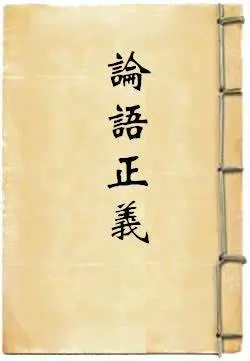 論語正義